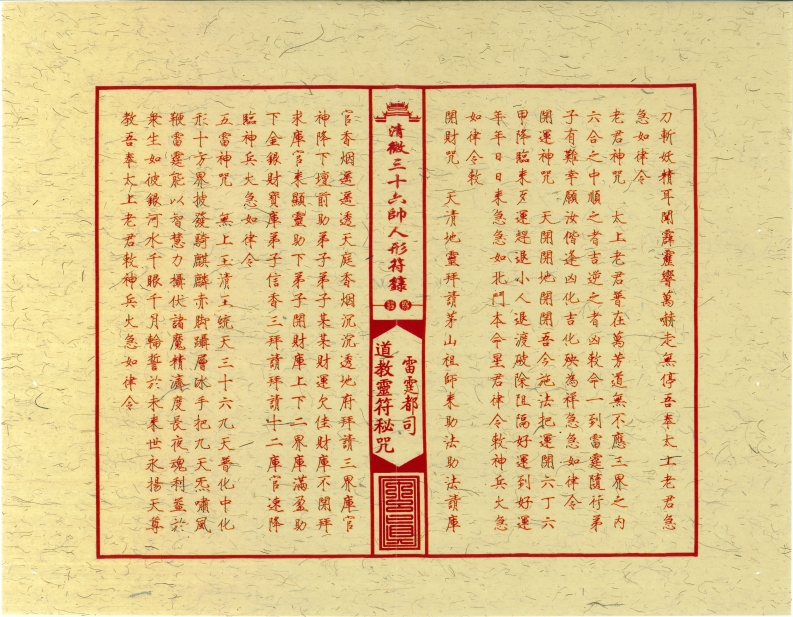 刀斬妖精耳聞霹靂響萬嚇走無停吾奉太上老君急
急如律令
老君神咒　太上老君普在萬芳道無不應三界之內
六合之中順之者吉逆之者凶敕命一到雷霆隨行弟
子有難幸願汝偕逢凶化吉化殃為祥急急如律令
開運神咒　天開開地開開吾今施法把運開六丁六
甲降臨來歹運趕退小人退渡破除阻隔好運到好運
年年日日來急急如北鬥本命星君律令敕神兵火急
如律令敕
開財咒　天清地靈拜請茅山祖師來助法助法請庫
清微三十六帥人形符籙
雷霆都司
道教靈符秘咒
官香烟遥遥透天庭香烟沉沉透地府拜請三界庫官
神降下壇前助弟子弟子某某財運欠佳財庫不開拜
求庫官來顯靈助下弟子開財庫上下二界庫滿盈助
下金銀財寶庫弟子信香三拜請拜請十二庫官速降
臨神兵火急如律令
五雷神咒　無上玉清王統天三十六九天普化中化
形十方界披發騎麒麟赤脚躡層冰手把九天炁嘯風
鞭雷霆能以智慧力攝伏諸魔精濟度長夜魂利益於
衆生如彼銀河水千眼千月輪誓於未來世永揚天尊
教吾奉太上老君敕神兵火急如律令